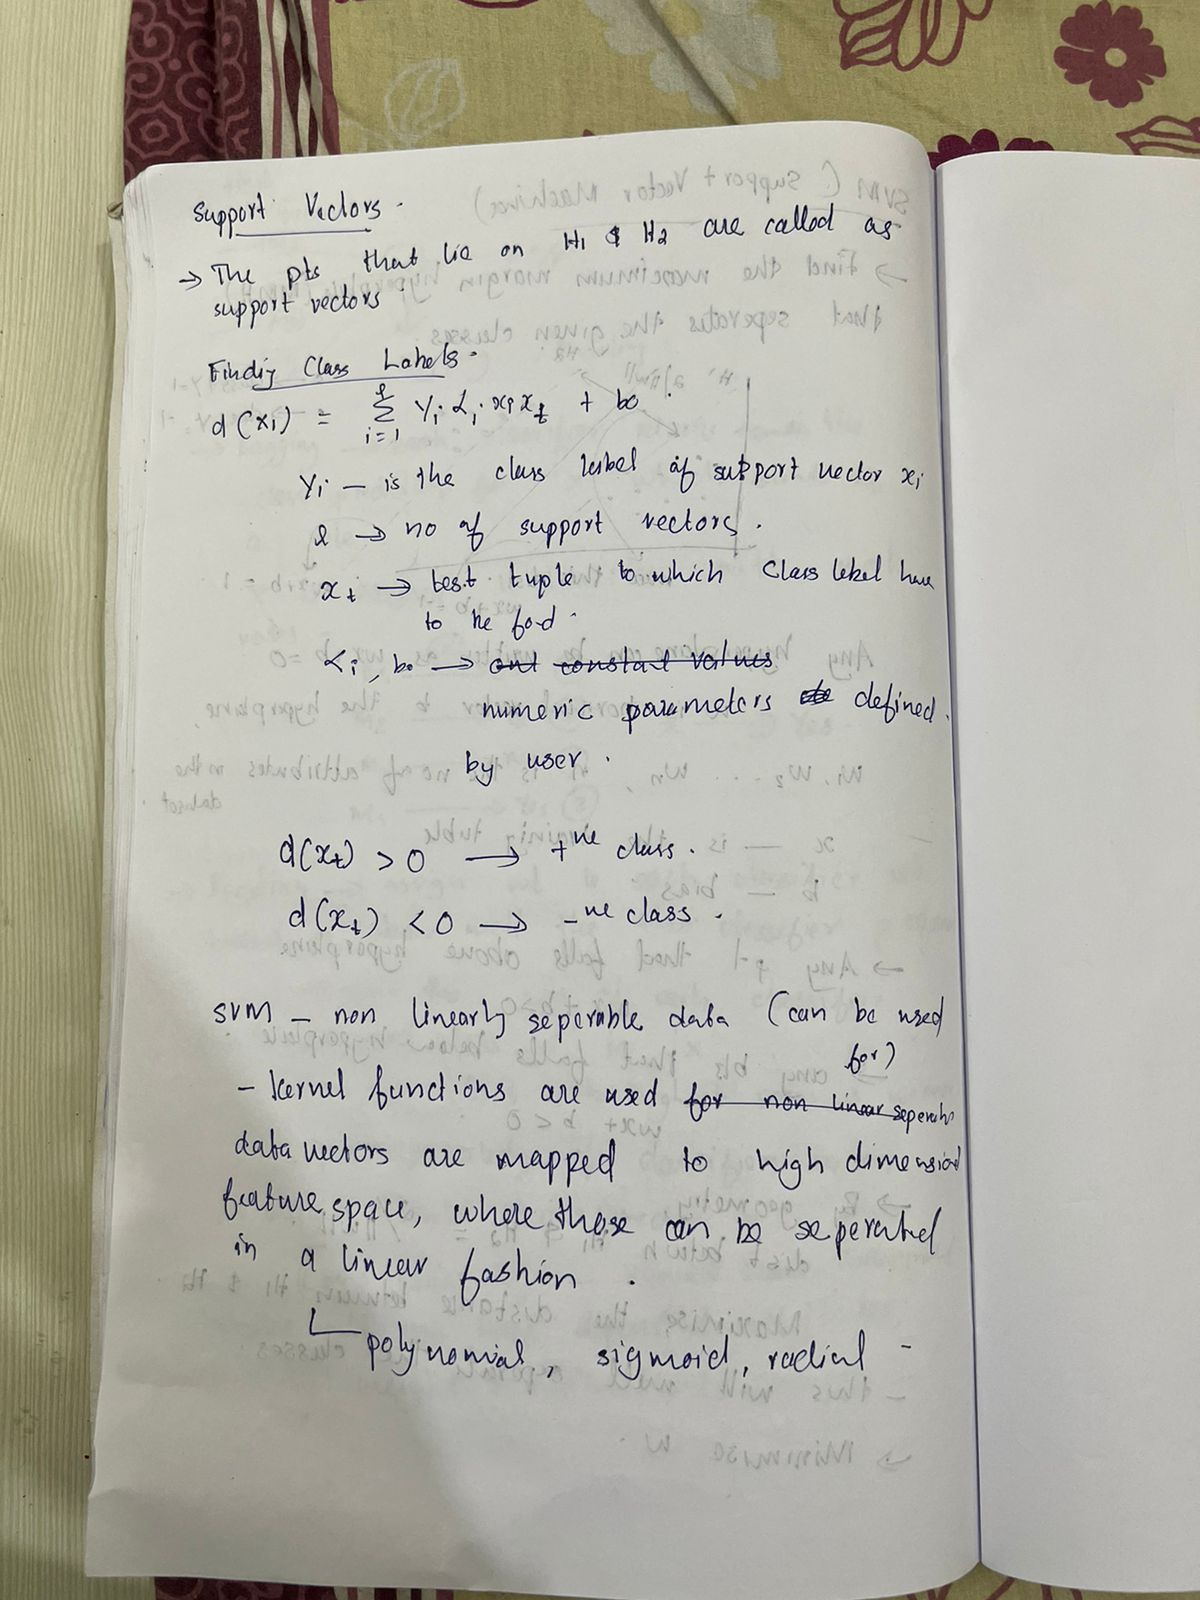 Support Vectors.
→ The pts that lie on H1 & H2 are called as
support vectors
Findig Class Labels.
d(xi) = l∑i=1 Yi αi xi xt + bo
Yi – is the class label of support vector xi
l → no of support vectors.
xt → test tuple to which class label have
to be fond.
αi, bo → ant constant values
numeric parameters defined
by user.
d(xt) > 0 → +ve class.
d(xt) < 0 → -ve class.
SVM – non linearly seperable data (can be used
for)
- kernel functions are used for non linear seperable
data vectors are mapped to high dimensional
feature space, where those can be seperated
in a linear fashion.
polynomial, sigmoid, radial -